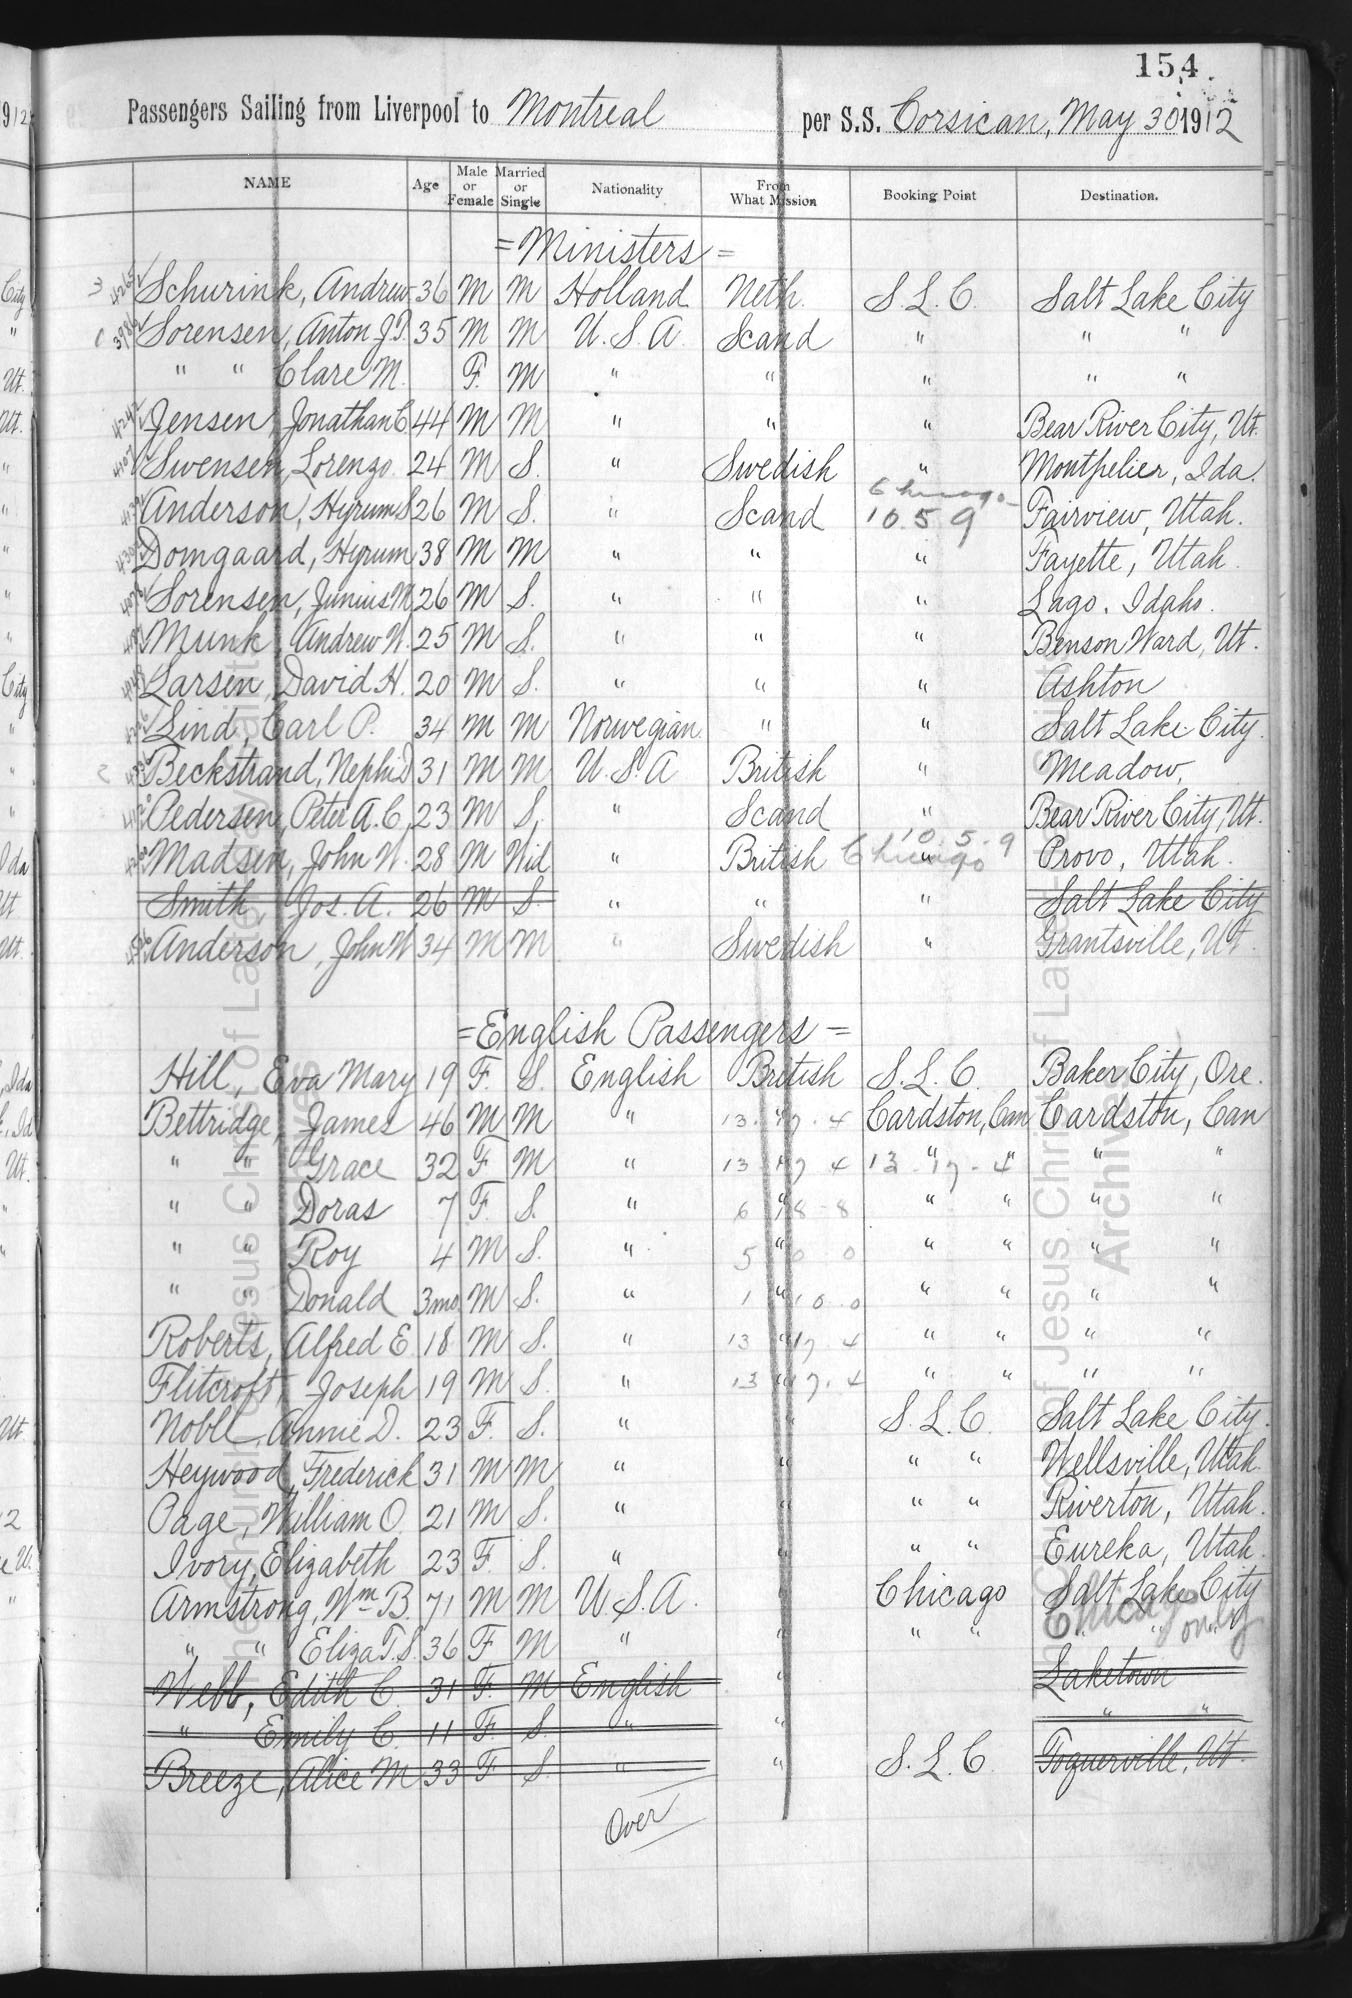 154
Passengers Sailing from Liverpool to Montreal per S.S. Corsican, May 30 1912
NAME Age Male or Female Married or Single Nationality From What Mission Booking Point Destination.
= Ministers =
3 4265 Schurink, Andrew 36 M M Holland Neth. S.L.C. Salt Lake City
Sorensen, Anton J.P. 35 M M U.S.A. Scand " " "
" " Clare M. F. M " " " " "
4242 Jensen, Jonathan C. 44 M M " " " Bear River City, Ut.
4107 Swensen, Lorenzo 24 M S. " Swedish " Montpelier, Ida.
Chicago
Anderson, Hyrum S 26 M S. " Scand 10 5 9 Fairview, Utah.
Domgaard, Hyrum 38 M M " " " Fayette, Utah.
Sorensen, Junius M 26 M S. " " " Lago. Idaho.
Munk, Andrew W. 25 M S. " " " Benson Ward, Ut.
Larsen, David H. 20 M S. " " " Ashton
Lind, Carl P. 34 M M Norwegian " " Salt Lake City.
Beckstrand, Nephi D 31 M M U.S.A British " Meadow.
Pedersen, Peter A.C. 23 M S. " Scand " Bear River City, Ut.
10.5.9
Madsen, John W. 28 M Wid " British Chicago " Provo, Utah.
Smith Jos. A. 26 M S. " " " Salt Lake City
Anderson, John W 34 M M " Swedish " Grantsville, Ut.
= English Passengers =
Hill, Eva Mary 19 F. S. English British S.L.C. Baker City, Ore.
Bettridge, James 46 M M " 13.17.4 " Cardston, Can Cardston, Can
" " Grace 32 F M " 13 17 4 " 13 - 17 - 4 " " " "
" " Doras 7 F. S. " 6 18 - 8 " " " " "
" " Roy 4 M S. " 5 0 0 " " " " "
" " Donald 3mo. M S. " 1 10.0 " " " " "
Roberts, Alfred E. 18 M S. " 13 17.4 " " " " "
Flitcroft, Joseph 19 M S. " 13 17.4 " " " " "
Noble, Annie D. 23 F. S. " " S.L.C. Salt Lake City.
Heywood, Frederick 31 M M " " " " Wellsville, Utah.
Page, William O. 21 M S. " " " " Riverton, Utah.
Ivory, Elizabeth 23 F. S. " " " " Eureka, Utah.
Armstrong, Wm B. 71 M M U.S.A. " Chicago Salt Lake City
Chicago only
" " Eliza T.S. 36 F M " " " " " "
Webb, Edith C. 31 F. M English " Laketown
" Emily C. 11 F. S. " " " "
Breeze, Alice M 33 F S. " " S.L.C. Toquerville, Ut.
Over
The Church of Jesus Christ of Latter-day Saints
Archives
The Church of Jesus Christ of Latter-day Saints
Archives